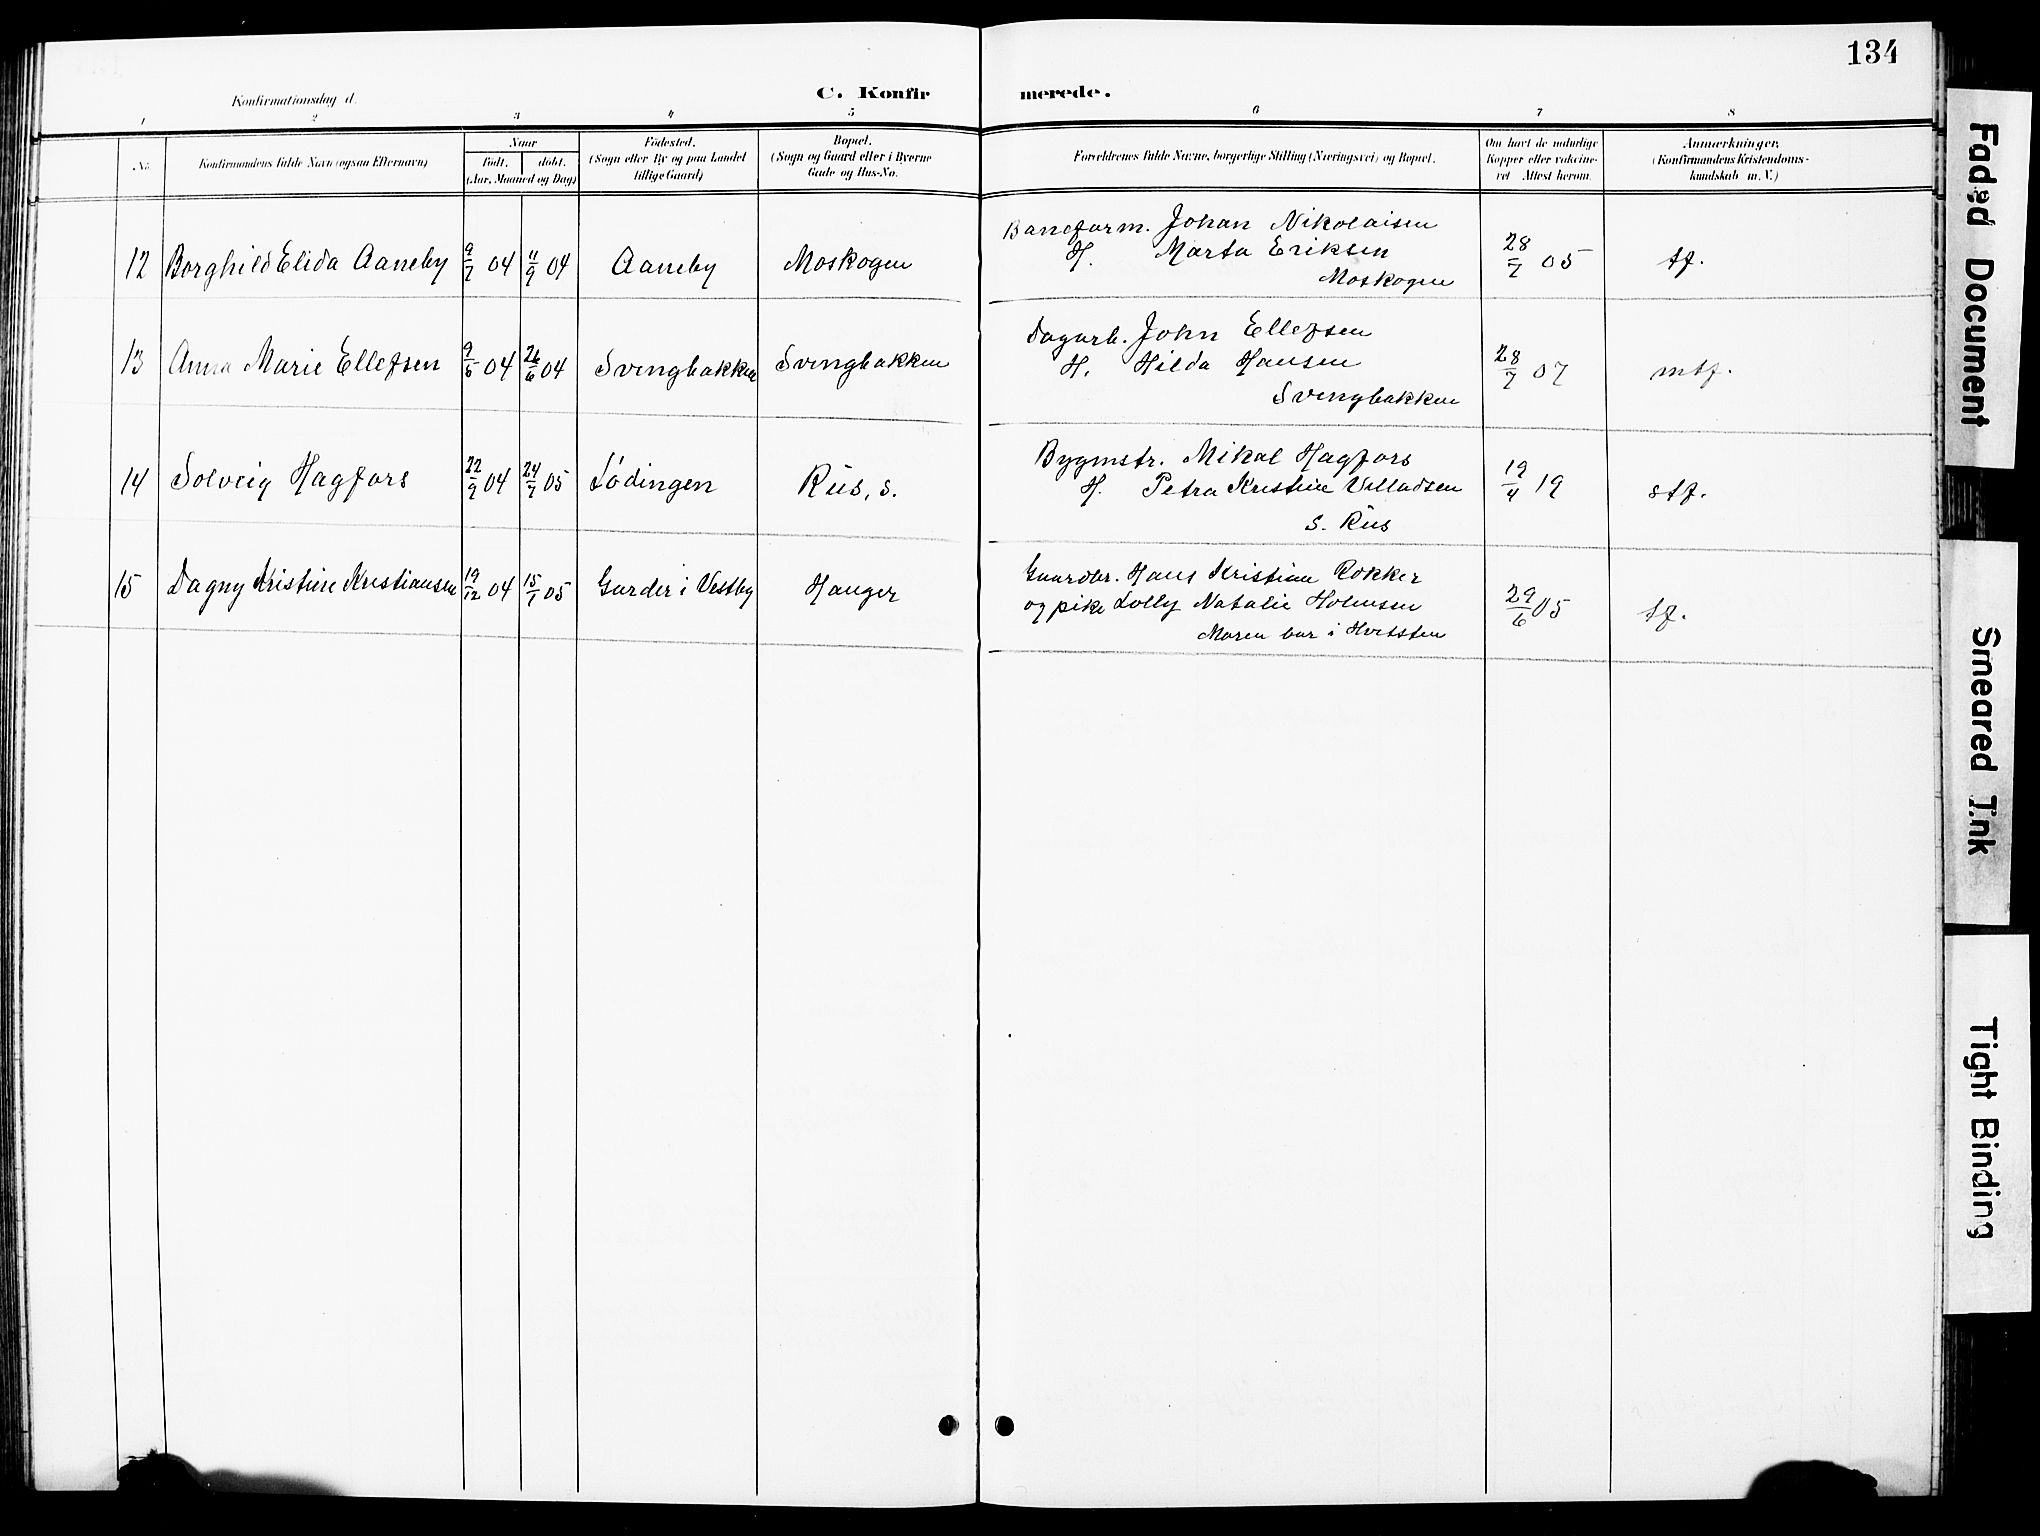 134
Konfirmationsdag d.
C. Konfirmerede.
1 2 3 4 5 6 7 8
No. Konfirmandens fulde Navn (ogsaa Efternavn) Naar Födt. döbt. (Aar, Maaned og Dag) Födested. (Sogn eller By og paa Landet tillige Gaard) Bopæl. (Sogn og Gaard eller i Byerne Gade og Hus-No. Forældrenes fulde Navne, borgerlige Stilling (Næringsvei) og Bopæl. Om havt de naturlige Kopper eller vakcineret Attest herom. Anmærkninger, (Konfirmandens Kristendomskundskab m. V.)
12 Borghild Elida Aaneby 9/7 04 11/9 04 Aaneby Moskogen Baneform. Johan Nikolaisen
H. Marta Eriksen 28/7 05 tf.
Moskogen
13 Anna Marie Ellefsen 9/5 04 26/6 04 Svingbakken Svingbakken Dagarb. John Ellefsen
H. Hilda Hansen 28/7 07 mtf.
Svingbakken
14 Solveig Hagfors 22/9 04 24/7 05 Lødingen Riis, s. Bygmstr. Mikal Hagfors
H. Petra Kristine Villadsen 19/4 19 stf.
s. Riis
15 Dagny Kristine Kristiansen 19/12 04 15/1 05 Garder i Vestby Hauger Gaardbr. Hans Kristian Rokker
og pike Lolly Natalie Holmsen 29/6 05 tf.
Moren bor i Hvitsten
Faded Document
Smeared Ink
Tight Binding